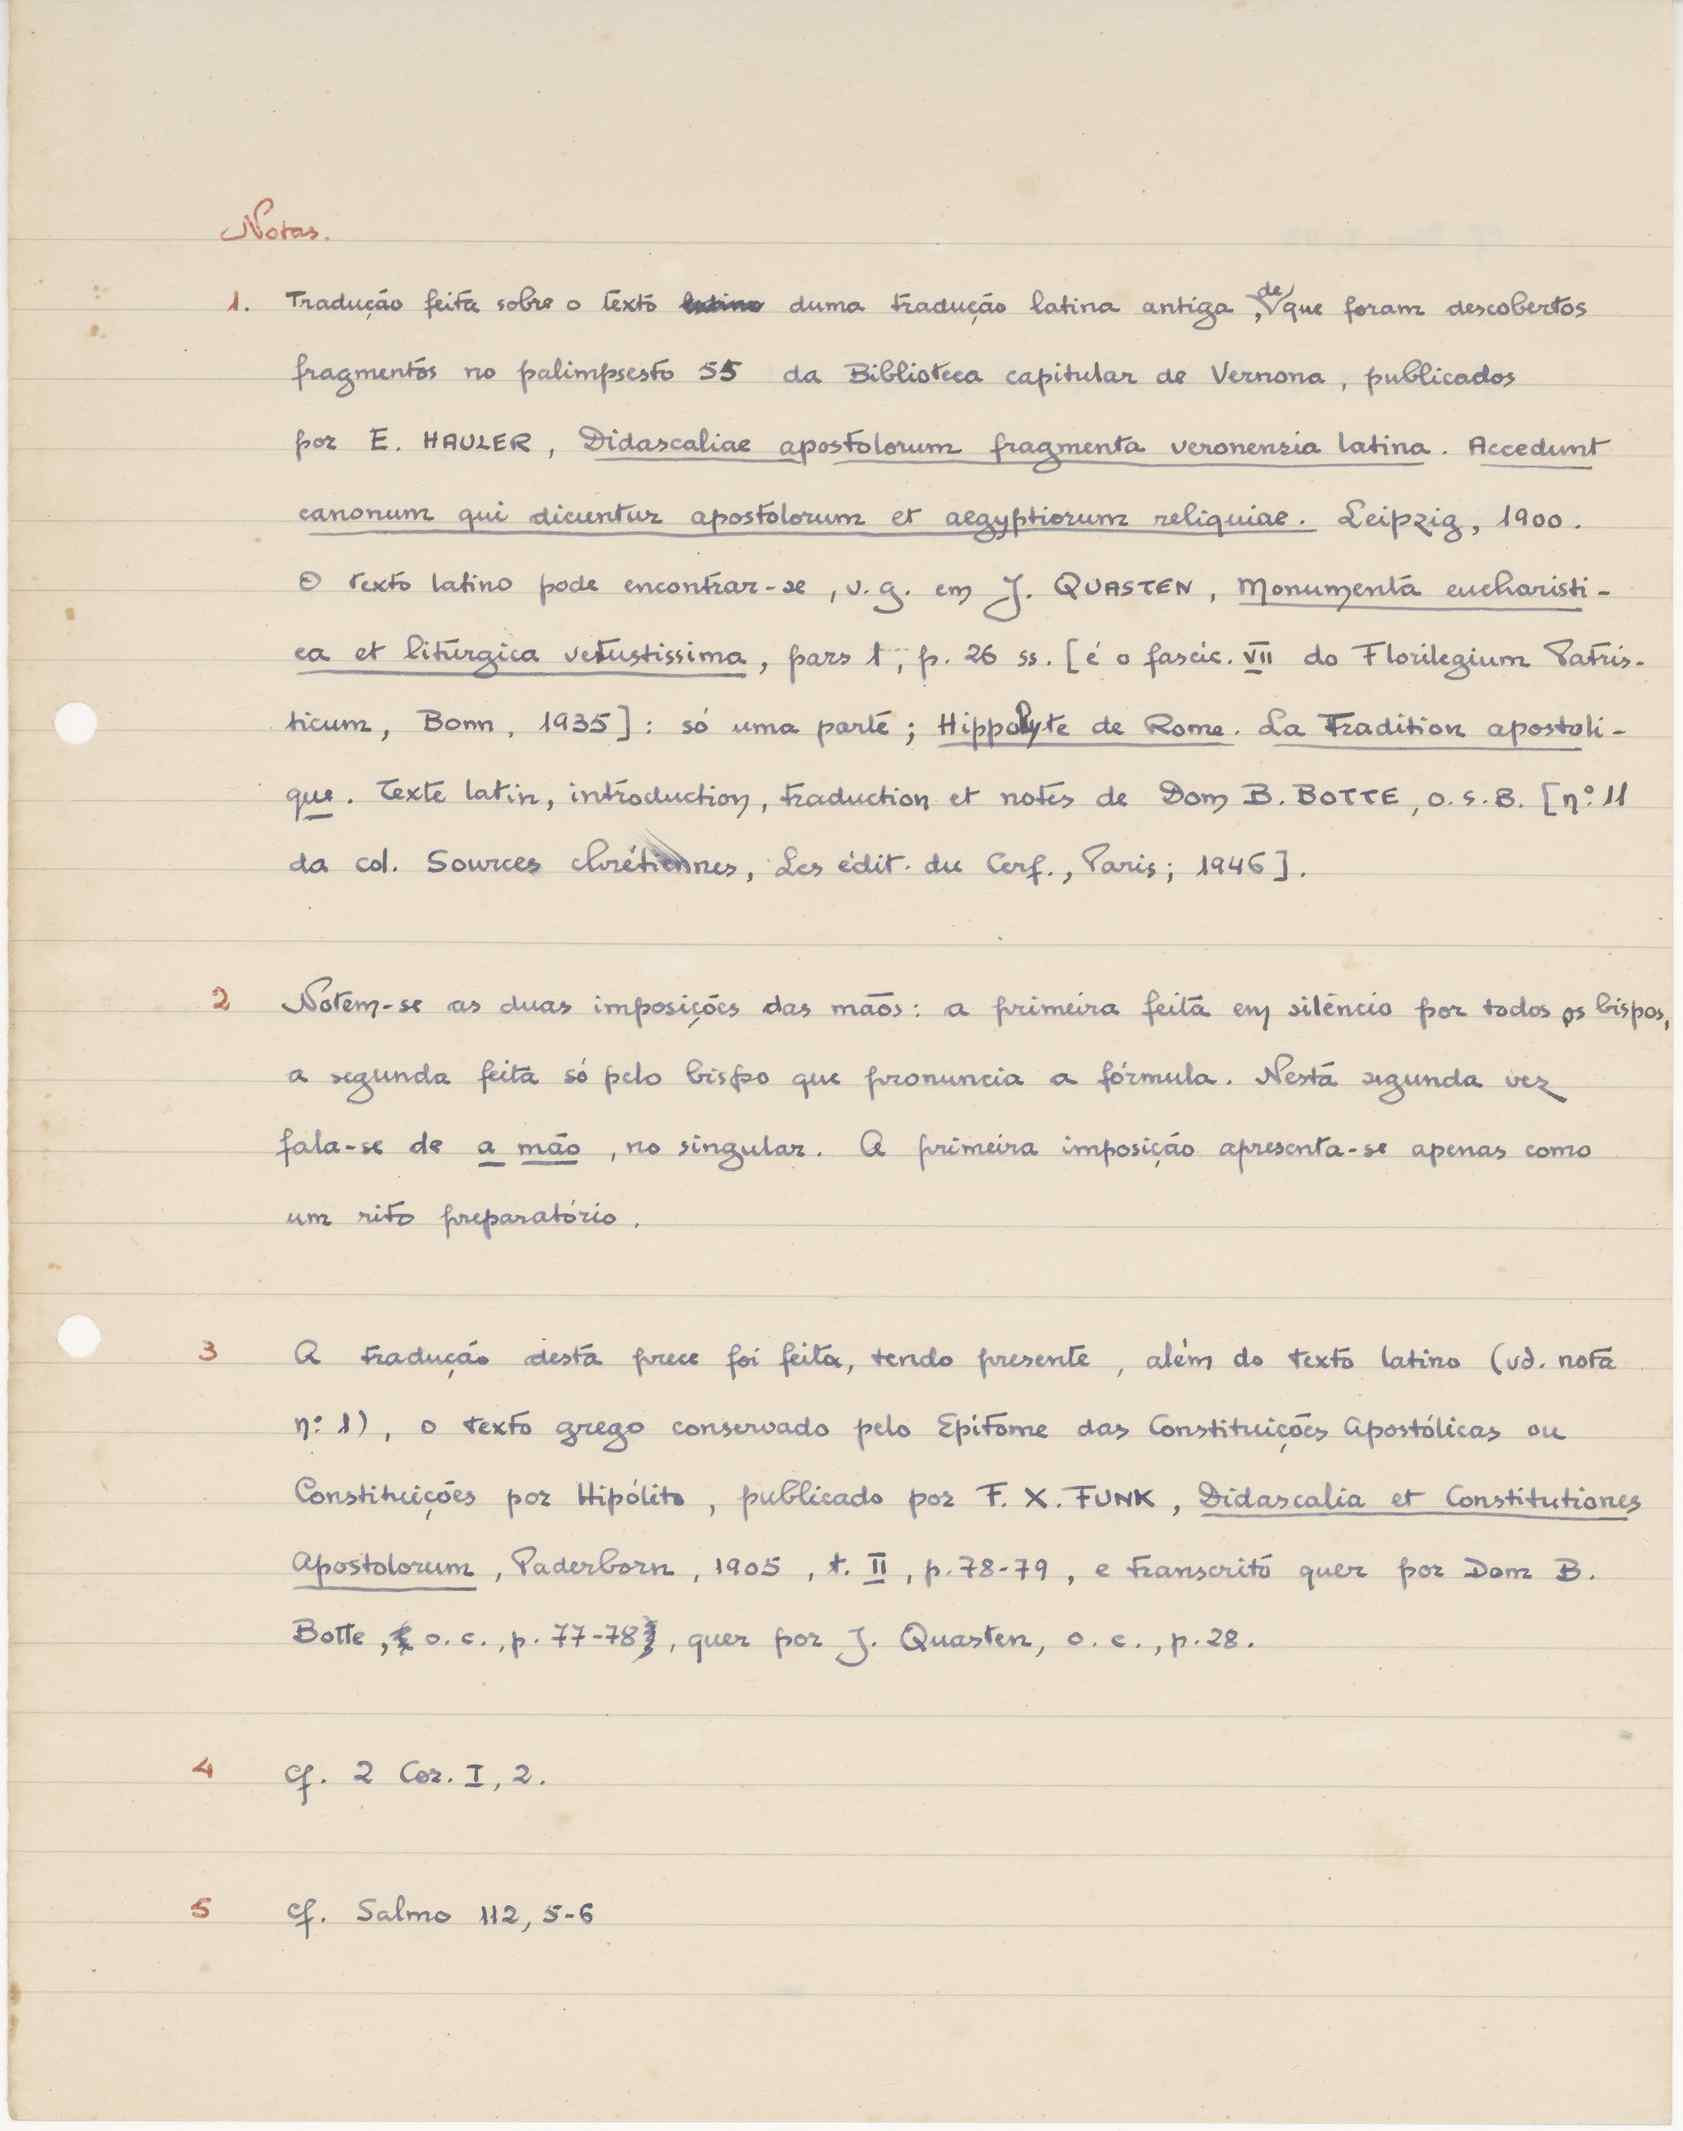 Notas.
1. Tradução feita sobre o texto latino duma tradução latina antiga, de que foram descobertos
fragmentos no palimpsesto 55 da Biblioteca capitular de Vernona, publicados
por E. HAULER, Didascaliae apostolorum fragmenta veronensia latina. Accedunt
canonum qui dicuntur apostolorum et aegyptiorum reliquiae. Leipzig, 1900.
O texto latino pode encontrar-se, v.g. em J. QUASTEN, Monumenta eucharisti-
ca et liturgica vetustissima, pars 1, p. 26 ss. [é o fascic. VII do Florilegium Patris-
ticum, Bonn, 1935]: só uma parte; Hippolyte de Rome. La Tradition apostoli-
que. Texte latin, introduction, traduction et notes de Dom B. BOTTE, O.S.B. [nº 11
da col. Sources chrétiennes, Les édit. du Cerf., Paris; 1946].
2 Notem-se as duas imposições das mãos: a primeira feita em silêncio por todos os bispos,
a segunda feita só pelo bispo que pronuncia a fórmula. Nesta segunda vez
fala-se de a mão, no singular. A primeira imposição apresenta-se apenas como
um rito preparatório.
3 A tradução desta prece foi feita, tendo presente, além do texto latino (vd. nota
nº 1), o texto grego conservado pelo Epítome das Constituições Apostólicas ou
Constituições por Hipólito, publicado por F. X. FUNK, Didascalia et Constitutiones
Apostolorum, Paderborn, 1905, t. II, p. 78-79, e transcrito quer por Dom B.
Botte, o. c., p. 77-78, quer por J. Quasten, o. c., p. 28.
4 Cf. 2 Cor. I, 2.
5 Cf. Salmo 112, 5-6